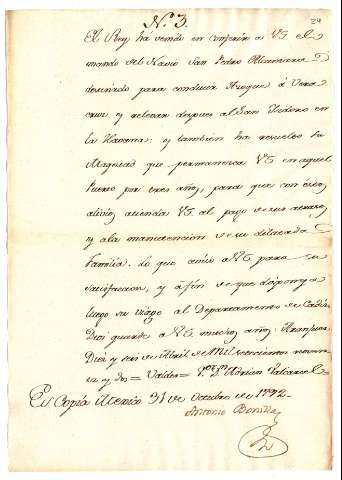 N.º 3.
24
El Rey há venido en conferir a VS el
mando del Navio San Pedro Alcantara
destinado para conducir Azogue á Vera
cruz y relevar despues al San Ysidoro en
la Havana: y tambien ha resuelto Su
Magestad que permanezca VS en aquel
Puerto por tres años, para que con este
alivio atienda VS al pago de sus atrasos,
y a la manutencion de su dilatada
Familia. Lo que aviso a VS para su
satisfaccion, y á fin de que disponga
luego su viage al Departamento de Cadiz
Dios guarde a VS muchos años. Aranjuez
Diez y seis de Abril de Mil setecientos noven
ta y dos = Valdes = S.or D.n Adrian
Es Copia Mexico 31 de Octubre de 1792.
Antonio Bonilla